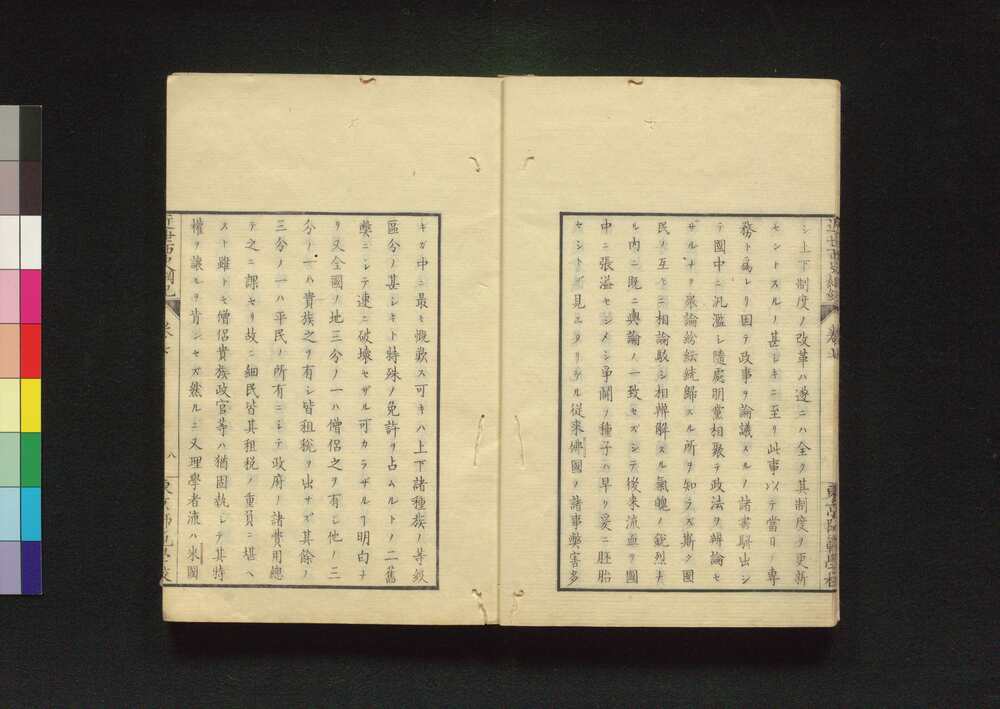 シ上下制度ノ改革ハ遂ニハ全ク其制度ヲ更新
セントスルノ甚シキニ至リ此事以テ當日ノ專
務ト爲レリ因テ政事ヲ論議スルノ諸書駢出シ
テ國中ニ汎濫レ隨處朋黨相聚テ政法ヲ辯論セ
ザルナク衆論紛紜統歸スル所ヲ知ラズ斯ク國
民ノ互ヒニ相論駁シ相辨解スル氣魄ノ鋭烈ナ
ル内ニ既ニ輿論ノ一致セズシテ後來流血ヲ國
中ニ張溢セシメシ爭鬭ノ種子ハ早ク爰ニ胚胎
セシト見エタリ 從來佛國ノ諸事弊害多
キガ中ニ最モ慨歎ス可キハ上下諸種族ノ等級
區分ノ甚シキト特殊ノ免許ヲ占ムルトノ二舊
弊ニシテ速ニ破壊セザル可カラザルヿ明白ナ
リ又全國ノ地三分ノ一ハ僧侶之ヲ有シ他ノ三
分ノ一ハ貴族之ヲ有シ皆租税ヲ出サズ其餘ノ
三分ノ一ハ平民ノ所有ニシテ政府ノ諸費用總
テ之ニ課セリ故ニ細民皆其租税ノ重負ニ堪ヘ
ズト雖トモ僧侶貴族政官等ハ猶固執シテ其特
權ヲ讓ルヲ肯ンセズ然ルニ又理學者流ハ米國
八